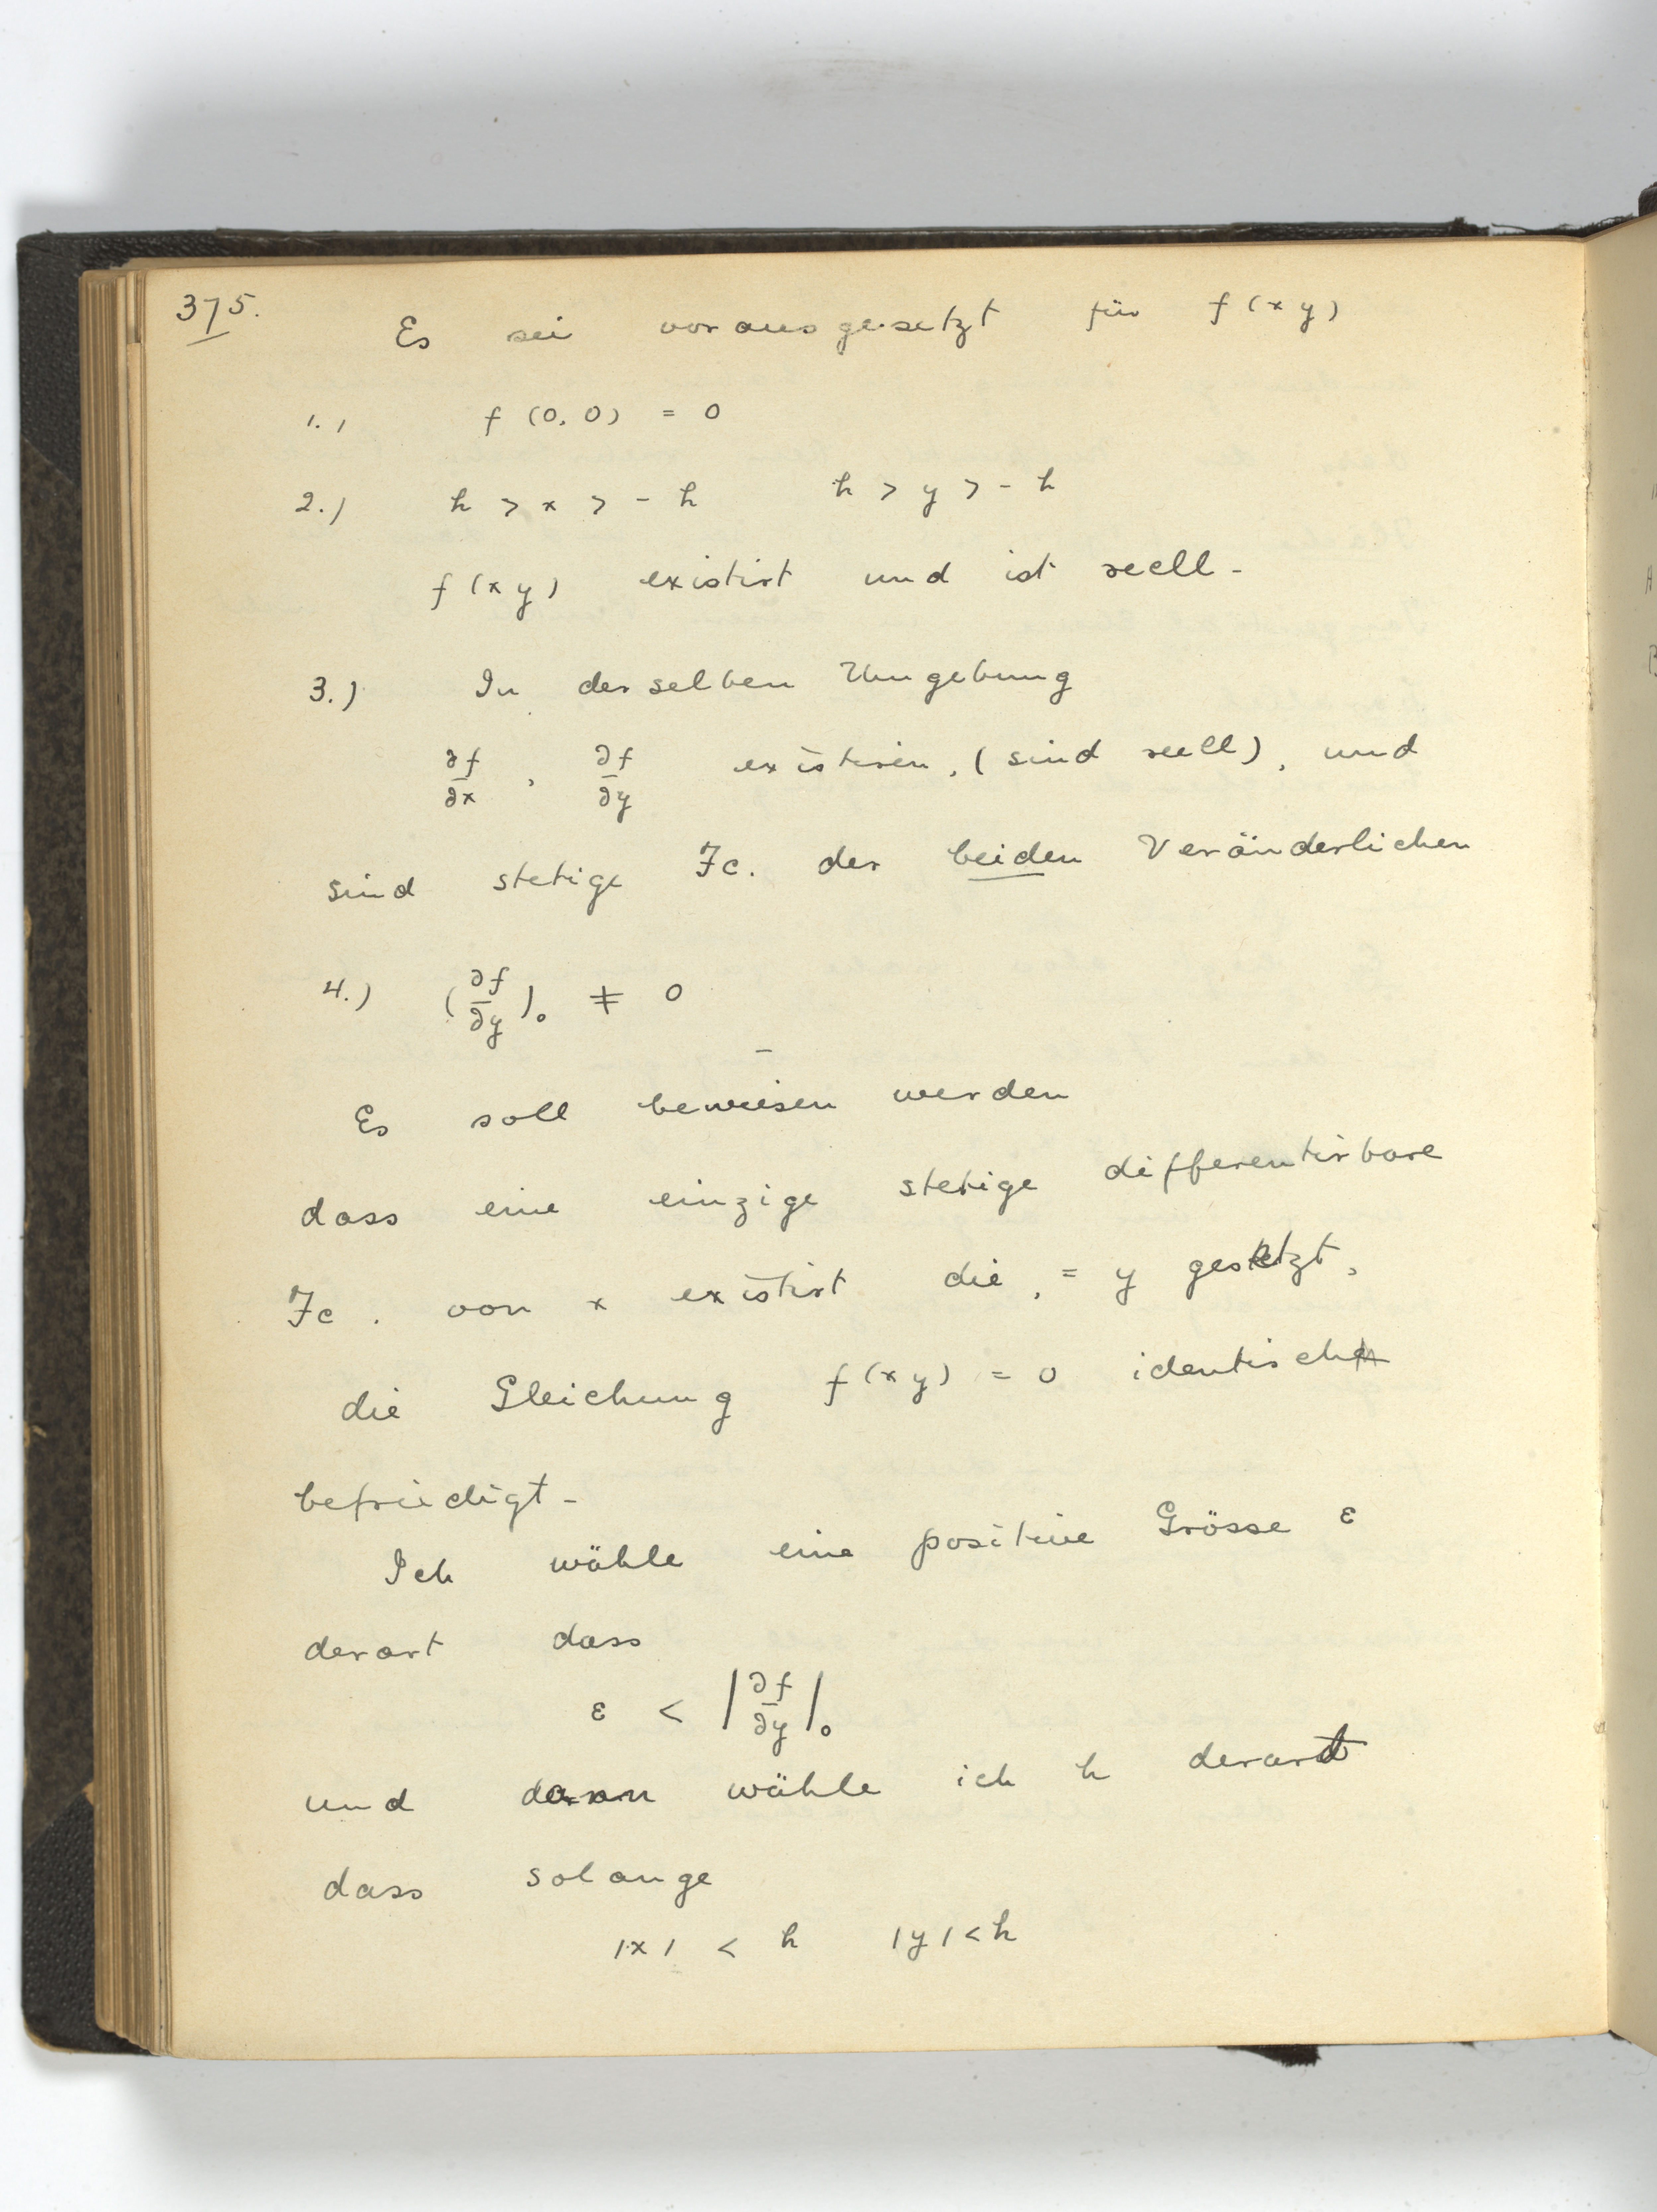 375.
Es sei vorausgesetzt für f(xy)
1.) f(0,0) = 0
2.) h > x > -h h > y > -h
f(xy) existirt und ist reell -
3.) In derselben Umgebung
∂f/∂x , ∂f/∂y existiren, (sind reell), und
sind stetige Fc. der beiden Veränderlichen
4.) (∂f/∂y)₀ ≠ 0
Es soll bewiesen werden
dass eine einzige stetige differentirbare
Fc. von x existirt die, = y gesetzt,
die Gleichung f(xy) = 0 identisch
befriedigt -
Ich wähle eine positive Grösse ε
derart dass
ε < |∂f/∂y|₀
und dann wähle ich h derart
dass solange
|x| < h |y| < h